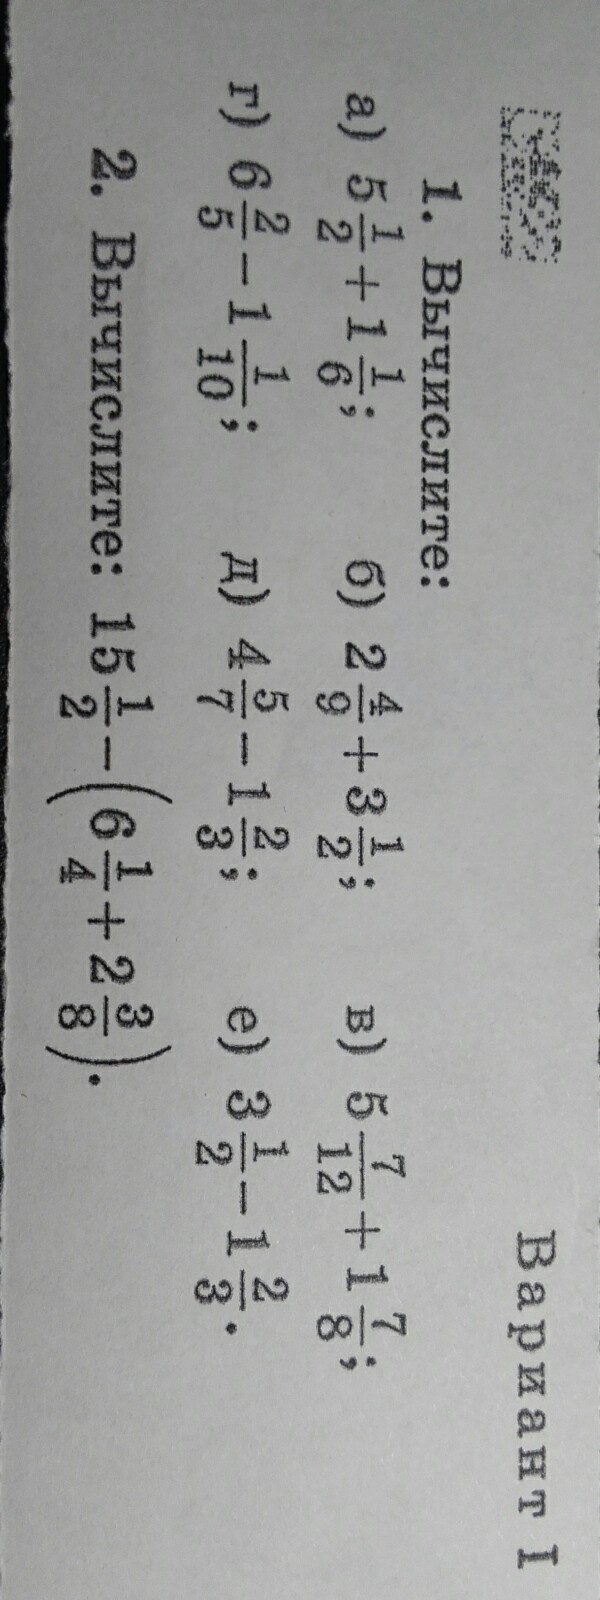 Вариант 1
1. Вычислите:
а) 5 1/2 + 1 1/6; б) 2 4/9 + 3 1/2; в) 5 7/12 + 1 7/8;
г) 6 2/5 − 1 1/10; д) 4 5/7 − 1 2/3; е) 3 1/2 − 1 2/3.
2. Вычислите: 15 1/2 − (6 1/4 + 2 3/8).